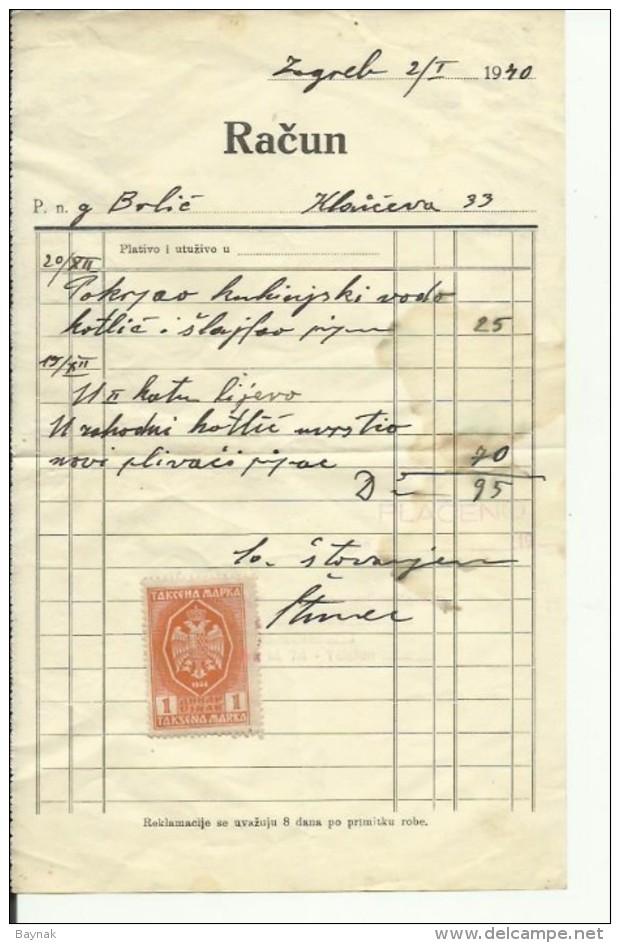 Zagreb 2/I 1940
Račun
P. n. g Brlić Klaićeva 33
Plativo i utuživo u
20/XII
kuhinjski vodo
kotlić i šlajfao pipu 25
19/XII
U II katu lijevo
U zahodni kotlić uvrstio
novi plivaći pipac 70
D 95
PLAĆENO
štovanjem
ТАКСЕНА МАРКА
1 ДИНАР DINAR 1
TAKSENA MARKA
Reklamacije se uvažuju 8 dana po primitku robe.
Baynak
www.delcampe.net